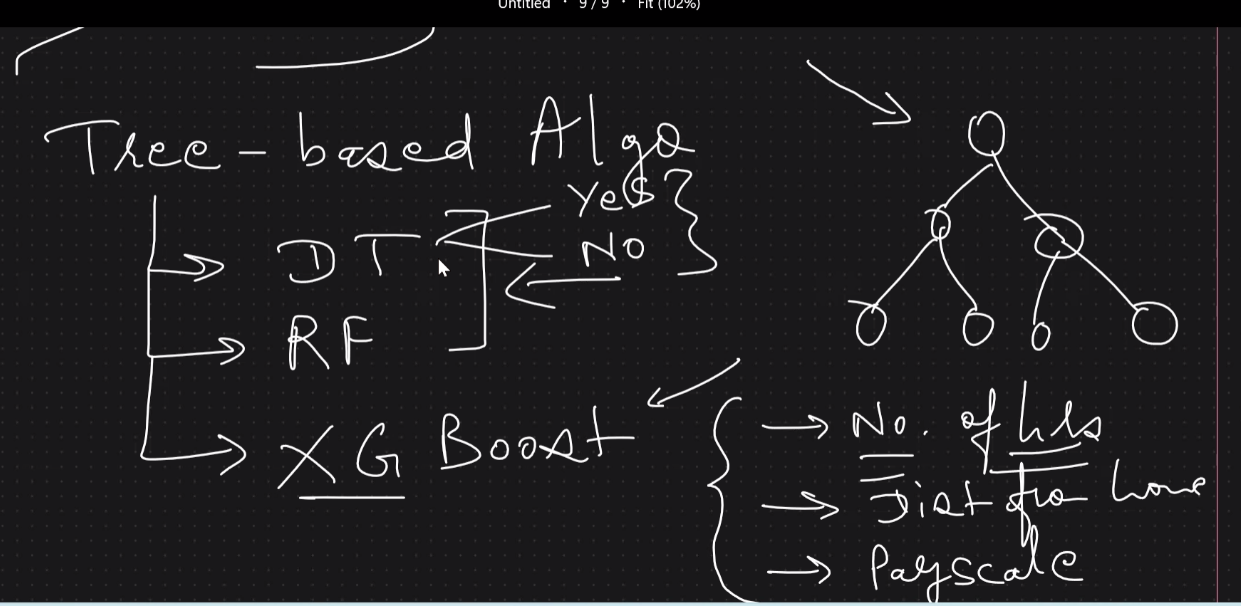 Untitled · 9 / 9 · Fit (102%)
Tree-based Algo
Yes?
DT
NO
RF
XG Boost
No. of hrs
Dist from home
Payscale